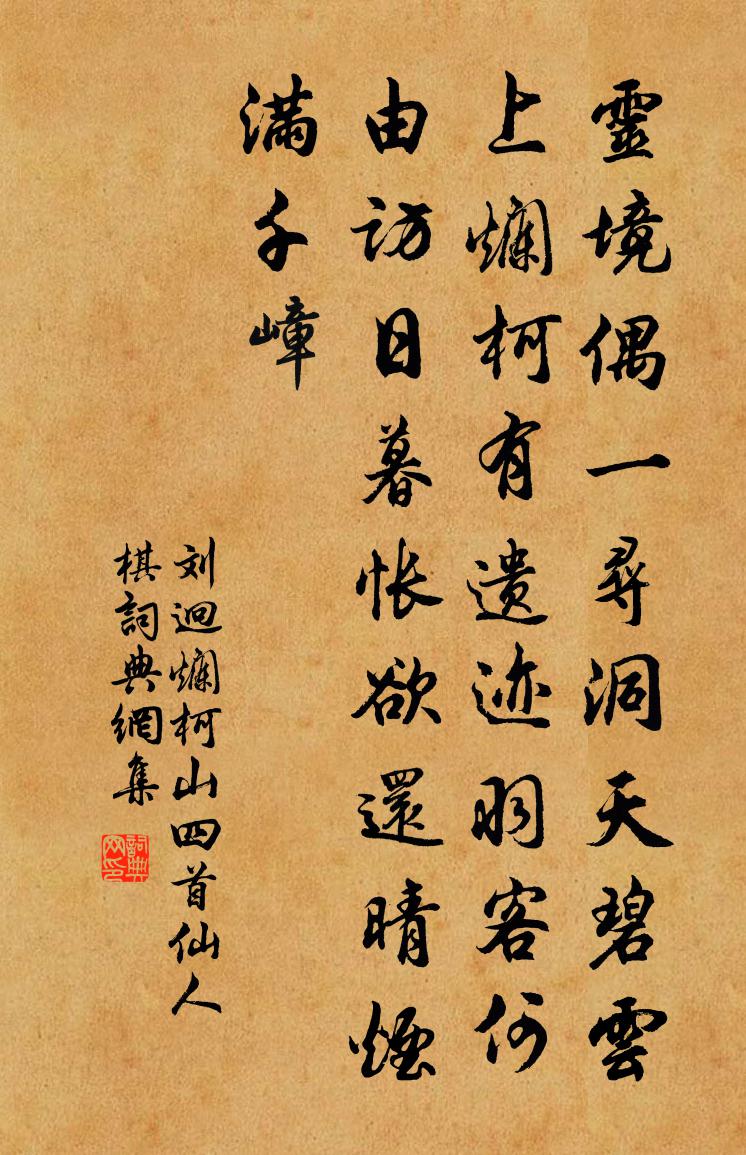 靈境偶一尋洞天碧雲
上爛柯有遺迹羽客何
由訪日暮悵欲還晴煙
滿千嶂
刘迥爛柯山四首仙人
棋詞典網集
詞典网印